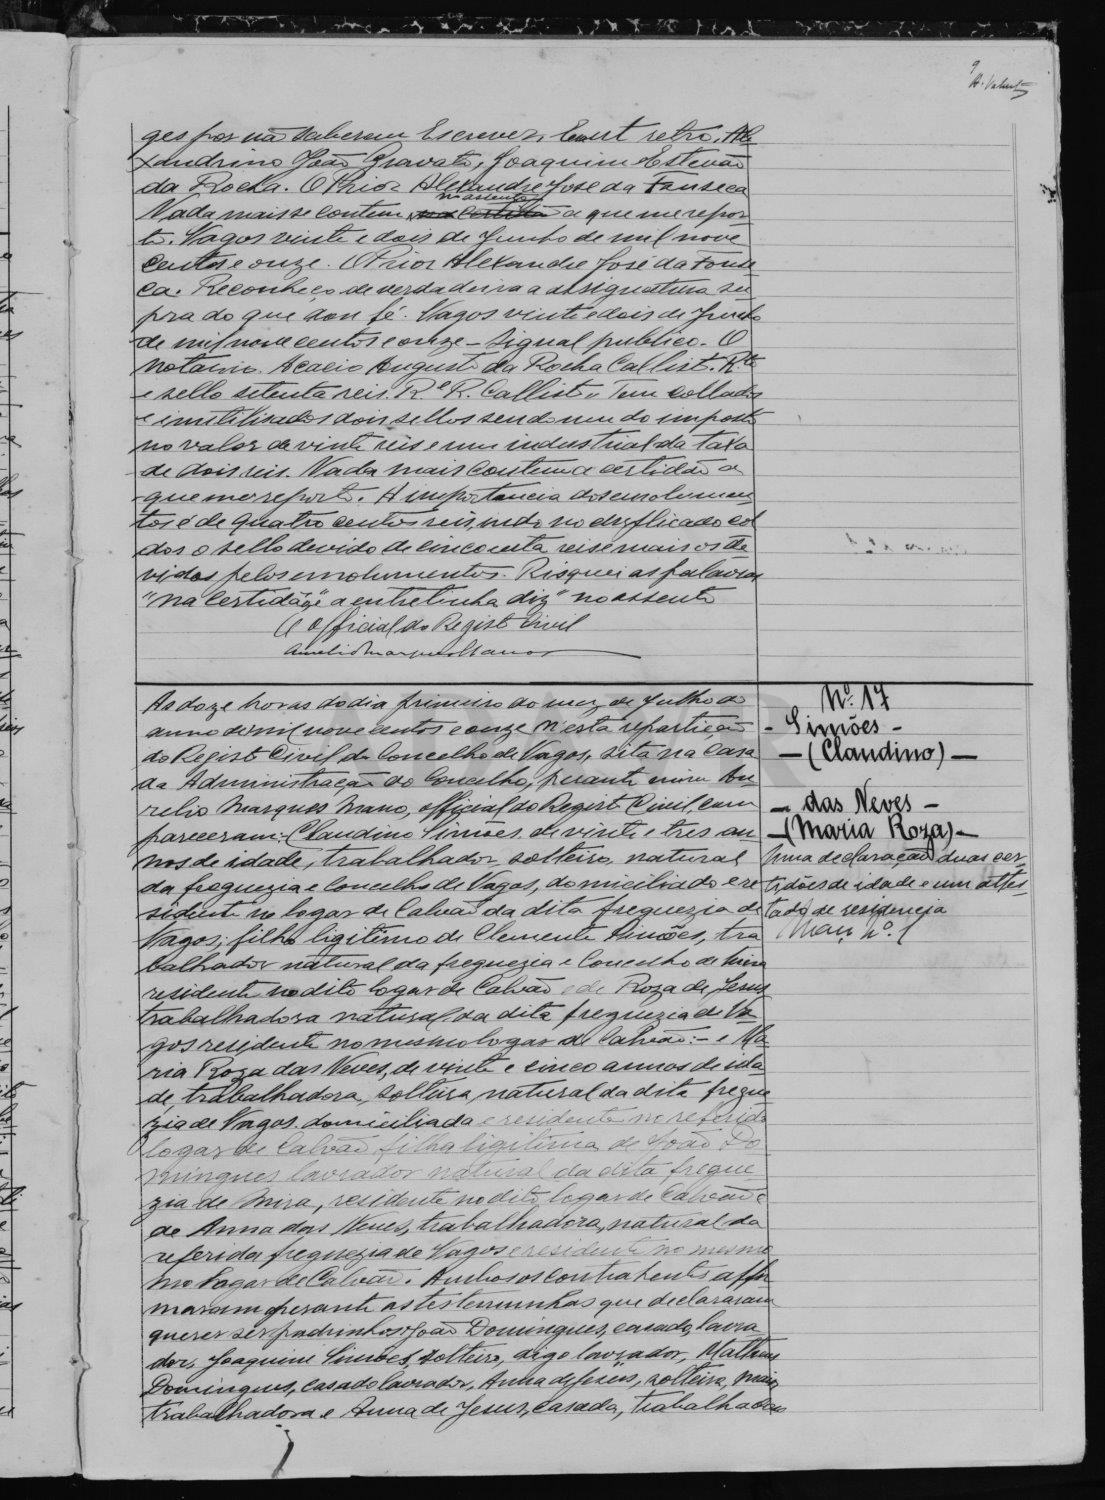 9
A. Valente
ges por não saberem Escrever. Era ut retro. Ale
xandrino João Gravato, Joaquim Estevão
da Rocha. O Prior Alexandre José da Fonseca
no assento
Nada mais se contem na certidão a que me repor
to. Vagos vinte e dois de Junho de mil nove
centos e onze. O Prior Alexandre José da Fonse
ca. Reconheço de verdadeira a assignatura su
pra do que dou fé. Vagos vinte e dois de Junho
de mil nove centos e onze - Signal publico. O
notario. Acacio Augusto da Rocha Callisto. R.to
e sello setenta reis. R.e R. Callisto. Tem collados
e inutilisados dois sellos sendo um do imposto
no valor de vinte reis e um industrial da taxa
de dois reis. Nada mais contem a certidão a
que me reporto. A importancia dos emolumen
tos é de quatro centos reis indo no duplicado col
dos o sello devido de cincoenta reis e mais os de
vidos pelos emolumentos. Risquei as palavras
"na certidão" e a entrelinha diz "no assento
O official do Registo Civil
Aurelio Marques Mano
As doze horas do dia primeiro do mez de Julho do
anno de mil nove centos e onze n'esta repartição
do Registo Civil do Concelho de Vagos, sita na casa
da Administração do Concelho, perante mim Au
relio Marques Mano, official do Registo Civil com
pareceram: Claudino Simões, de vinte e tres an
nos de idade, trabalhador, solteiro, natural
da freguezia e Concelho de Vagos, domiciliado e re
sidente no logar de Calvão da dita freguezia de
Vagos; filho ligitimo de Clemente Simões, tra
balhador natural da freguezia e Concelho de Mira
residente no dito logar de Calvão e de Roza de Jesus
trabalhadora natural da dita freguezia de Va
gos residente no mesmo logar de Calvão: - e Ma
ria Roza das Neves, de vinte e cinco annos de ida
de trabalhadora, solteira, natural da dita fregue
zia de Vagos domiciliada e residente no referido
logar de Calvão filha ligitima de João Do
mingues lavrador natural da dita fregue
zia de Mira, residente no dito logar de Calvão e
de Anna das Neves, trabalhadora, natural da
referida freguezia de Vagos e residente no mesmo
mo logar de Calvão. Ambos os contrahentes affir
maram perante as testemunhas que declararam
querer ser padrinhos João Domingues, casado, lavra
dor, Joaquim Simões, solteiro, digo lavrador, Matheus
Domingues, casado lavrador, Anna de Jesus, solteira, maior
trabalhadora e Anna de Jesus, casada, trabalhadora
Nº 17
- Simões -
- (Claudino) -
- das Neves -
- (Maria Roza) -
Uma declaração duas cer-
tidões de idade e um attes-
tado de residencia
Maç. nº 1